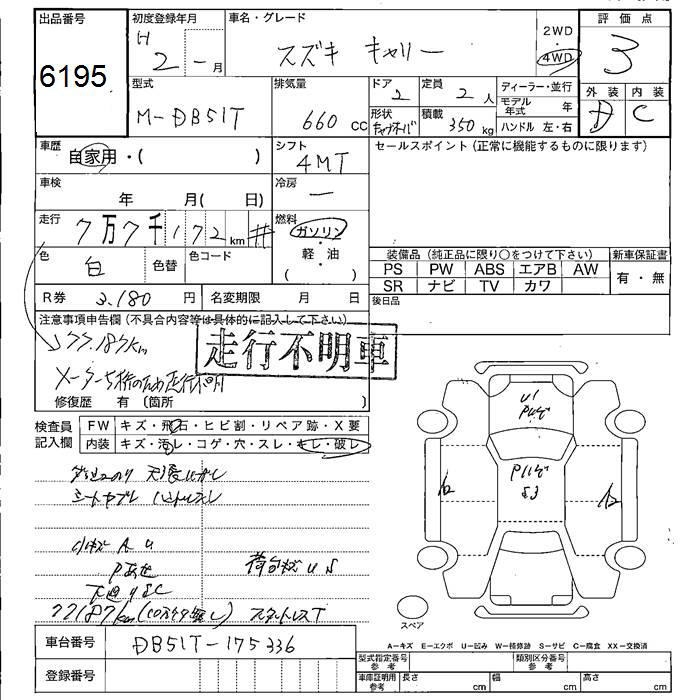 出品番号
6195
初度登録年月
H 2 - 月
車名・グレード
スズキ キャリー
2WD
4WD
評価点
3
型式
M-DB51T
排気量
660 cc
ドア
2
定員
2 人
形状
積載
350 kg
ディーラー・並行
モデル年式 年
ハンドル 左・右
外装
D
内装
C
車歴
自家用・( )
シフト
4MT
セールスポイント (正常に機能するものに限ります)
車検
年 月( 日)
冷房
—
走行
7万7千172 km #
燃料
ガソリン
軽・油
( )
色
白
色替
色コード
R券
3.180 円
名変期限 月 日
装備品 (純正品に限り○をつけて下さい)
新車保証書
PS PW ABS エアB AW
SR ナビ TV カワ
有・無
後日品
注意事項申告欄 (不具合内容等は具体的に記入して下さい)
77.187km
走行不明車
メーター5桁のため走行不明
修復歴 有 〔箇所 〕
検査員記入欄
FW キズ・飛石・ヒビ割・リペア跡・X要
内装 キズ・汚レ・コゲ・穴・スレ・キレ・破レ
シートヤブレ
小キズ A U
P あせ
荷台キズ U S
下廻り S C
77187km
スタットレスT
U1
P
P
S3
スペア
車台番号
DB51T-175336
登録番号
A-キズ E-エクボ U-凹み W-補修跡 S-サビ C-腐食 XX-交換済
型式指定番号 参考
類別区分番号 参考
車庫証明用 参考
長さ cm
幅 cm
高さ cm